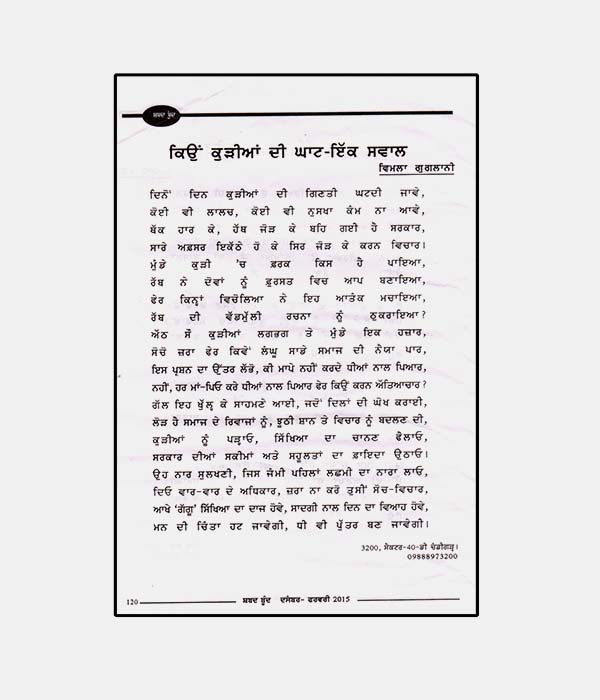 ਸ਼ਬਦ ਬੂੰਦ
ਕਿਉਂ ਕੁੜੀਆਂ ਦੀ ਘਾਟ-ਇੱਕ ਸਵਾਲ
ਵਿਮਲਾ ਗੁਗਲਾਨੀ
ਦਿਨੋਂ ਦਿਨ ਕੁੜੀਆਂ ਦੀ ਗਿਣਤੀ ਘਟਦੀ ਜਾਵੇ,
ਕੋਈ ਵੀ ਲਾਲਚ, ਕੋਈ ਵੀ ਨੁਸਖਾ ਕੰਮ ਨਾ ਆਵੇ,
ਥੱਕ ਹਾਰ ਕੇ, ਹੱਥ ਜੋੜ ਕੇ ਬਹਿ ਗਈ ਹੈ ਸਰਕਾਰ,
ਸਾਰੇ ਅਫ਼ਸਰ ਇਕੱਠੇ ਹੋ ਕੇ ਸਿਰ ਜੋੜ ਕੇ ਕਰਨ ਵਿਚਾਰ।
ਮੁੰਡੇ ਕੁੜੀ 'ਚ ਫ਼ਰਕ ਕਿਸ ਹੈ ਪਾਇਆ,
ਰੱਬ ਨੇ ਦੋਵਾਂ ਨੂੰ ਫ਼ੁਰਸਤ ਵਿਚ ਆਪ ਬਣਾਇਆ,
ਫੇਰ ਕਿਨ੍ਹਾਂ ਵਿਚੋਲਿਆ ਨੇ ਇਹ ਆਤੰਕ ਮਚਾਇਆ,
ਰੱਬ ਦੀ ਵੱਡਮੁੱਲੀ ਰਚਨਾ ਨੂੰ ਠੁਕਰਾਇਆ?
ਅੱਠ ਸੌ ਕੁੜੀਆਂ ਲਗਭਗ ਤੇ ਮੁੰਡੇ ਇਕ ਹਜ਼ਾਰ,
ਸੋਚੋ ਜ਼ਰਾ ਫੇਰ ਕਿਵੇਂ ਲੰਘੂ ਸਾਡੇ ਸਮਾਜ ਦੀ ਨੈਯਾ ਪਾਰ,
ਇਸ ਪ੍ਰਸ਼ਨ ਦਾ ਉੱਤਰ ਲੱਭੋ, ਕੀ ਮਾਪੇ ਨਹੀਂ ਕਰਦੇ ਧੀਆਂ ਨਾਲ ਪਿਆਰ,
ਨਹੀਂ, ਹਰ ਮਾਂ-ਪਿਓ ਕਰੇ ਧੀਆਂ ਨਾਲ ਪਿਆਰ ਫੇਰ ਕਿਉਂ ਕਰਨ ਅੱਤਿਆਚਾਰ?
ਗੱਲ ਇਹ ਖੁੱਲ੍ਹ ਕੇ ਸਾਹਮਣੇ ਆਈ, ਜਦੋਂ ਦਿਲਾਂ ਦੀ ਘੋਖ ਕਰਾਈ,
ਲੋੜ ਹੈ ਸਮਾਜ ਦੇ ਰਿਵਾਜਾਂ ਨੂੰ, ਝੂਠੀ ਸ਼ਾਨ ਤੇ ਵਿਚਾਰ ਨੂੰ ਬਦਲਣ ਦੀ,
ਕੁੜੀਆਂ ਨੂੰ ਪੜ੍ਹਾਓ, ਸਿੱਖਿਆ ਦਾ ਚਾਨਣ ਫੈਲਾਓ,
ਸਰਕਾਰ ਦੀਆਂ ਸਕੀਮਾਂ ਅਤੇ ਸਹੂਲਤਾਂ ਦਾ ਫ਼ਾਇਦਾ ਉਠਾਓ।
ਉਹ ਨਾਰ ਸੁਲਖਣੀ, ਜਿਸ ਜੰਮੀ ਪਹਿਲਾਂ ਲਛਮੀ ਦਾ ਨਾਰਾ ਲਾਓ,
ਦਿਓ ਵਾਰ-ਵਾਰ ਦੇ ਅਧਿਕਾਰ, ਜ਼ਰਾ ਨਾ ਕਰੋ ਤੁਸੀਂ ਸੋਚ-ਵਿਚਾਰ,
ਆਖੇ 'ਗੱਗੂ' ਸਿੱਖਿਆ ਦਾ ਦਾਜ ਹੋਵੇ, ਸਾਦਗੀ ਨਾਲ ਦਿਨ ਦਾ ਵਿਆਹ ਹੋਵੇ,
ਮਨ ਦੀ ਚਿੰਤਾ ਹਟ ਜਾਵੇਗੀ, ਧੀ ਵੀ ਪੁੱਤਰ ਬਣ ਜਾਵੇਗੀ।
3200, ਸੈਕਟਰ-40-ਡੀ ਚੰਡੀਗੜ੍ਹ।
09888973200
120 ਸ਼ਬਦ ਬੂੰਦ ਦਸੰਬਰ- ਫਰਵਰੀ 2015